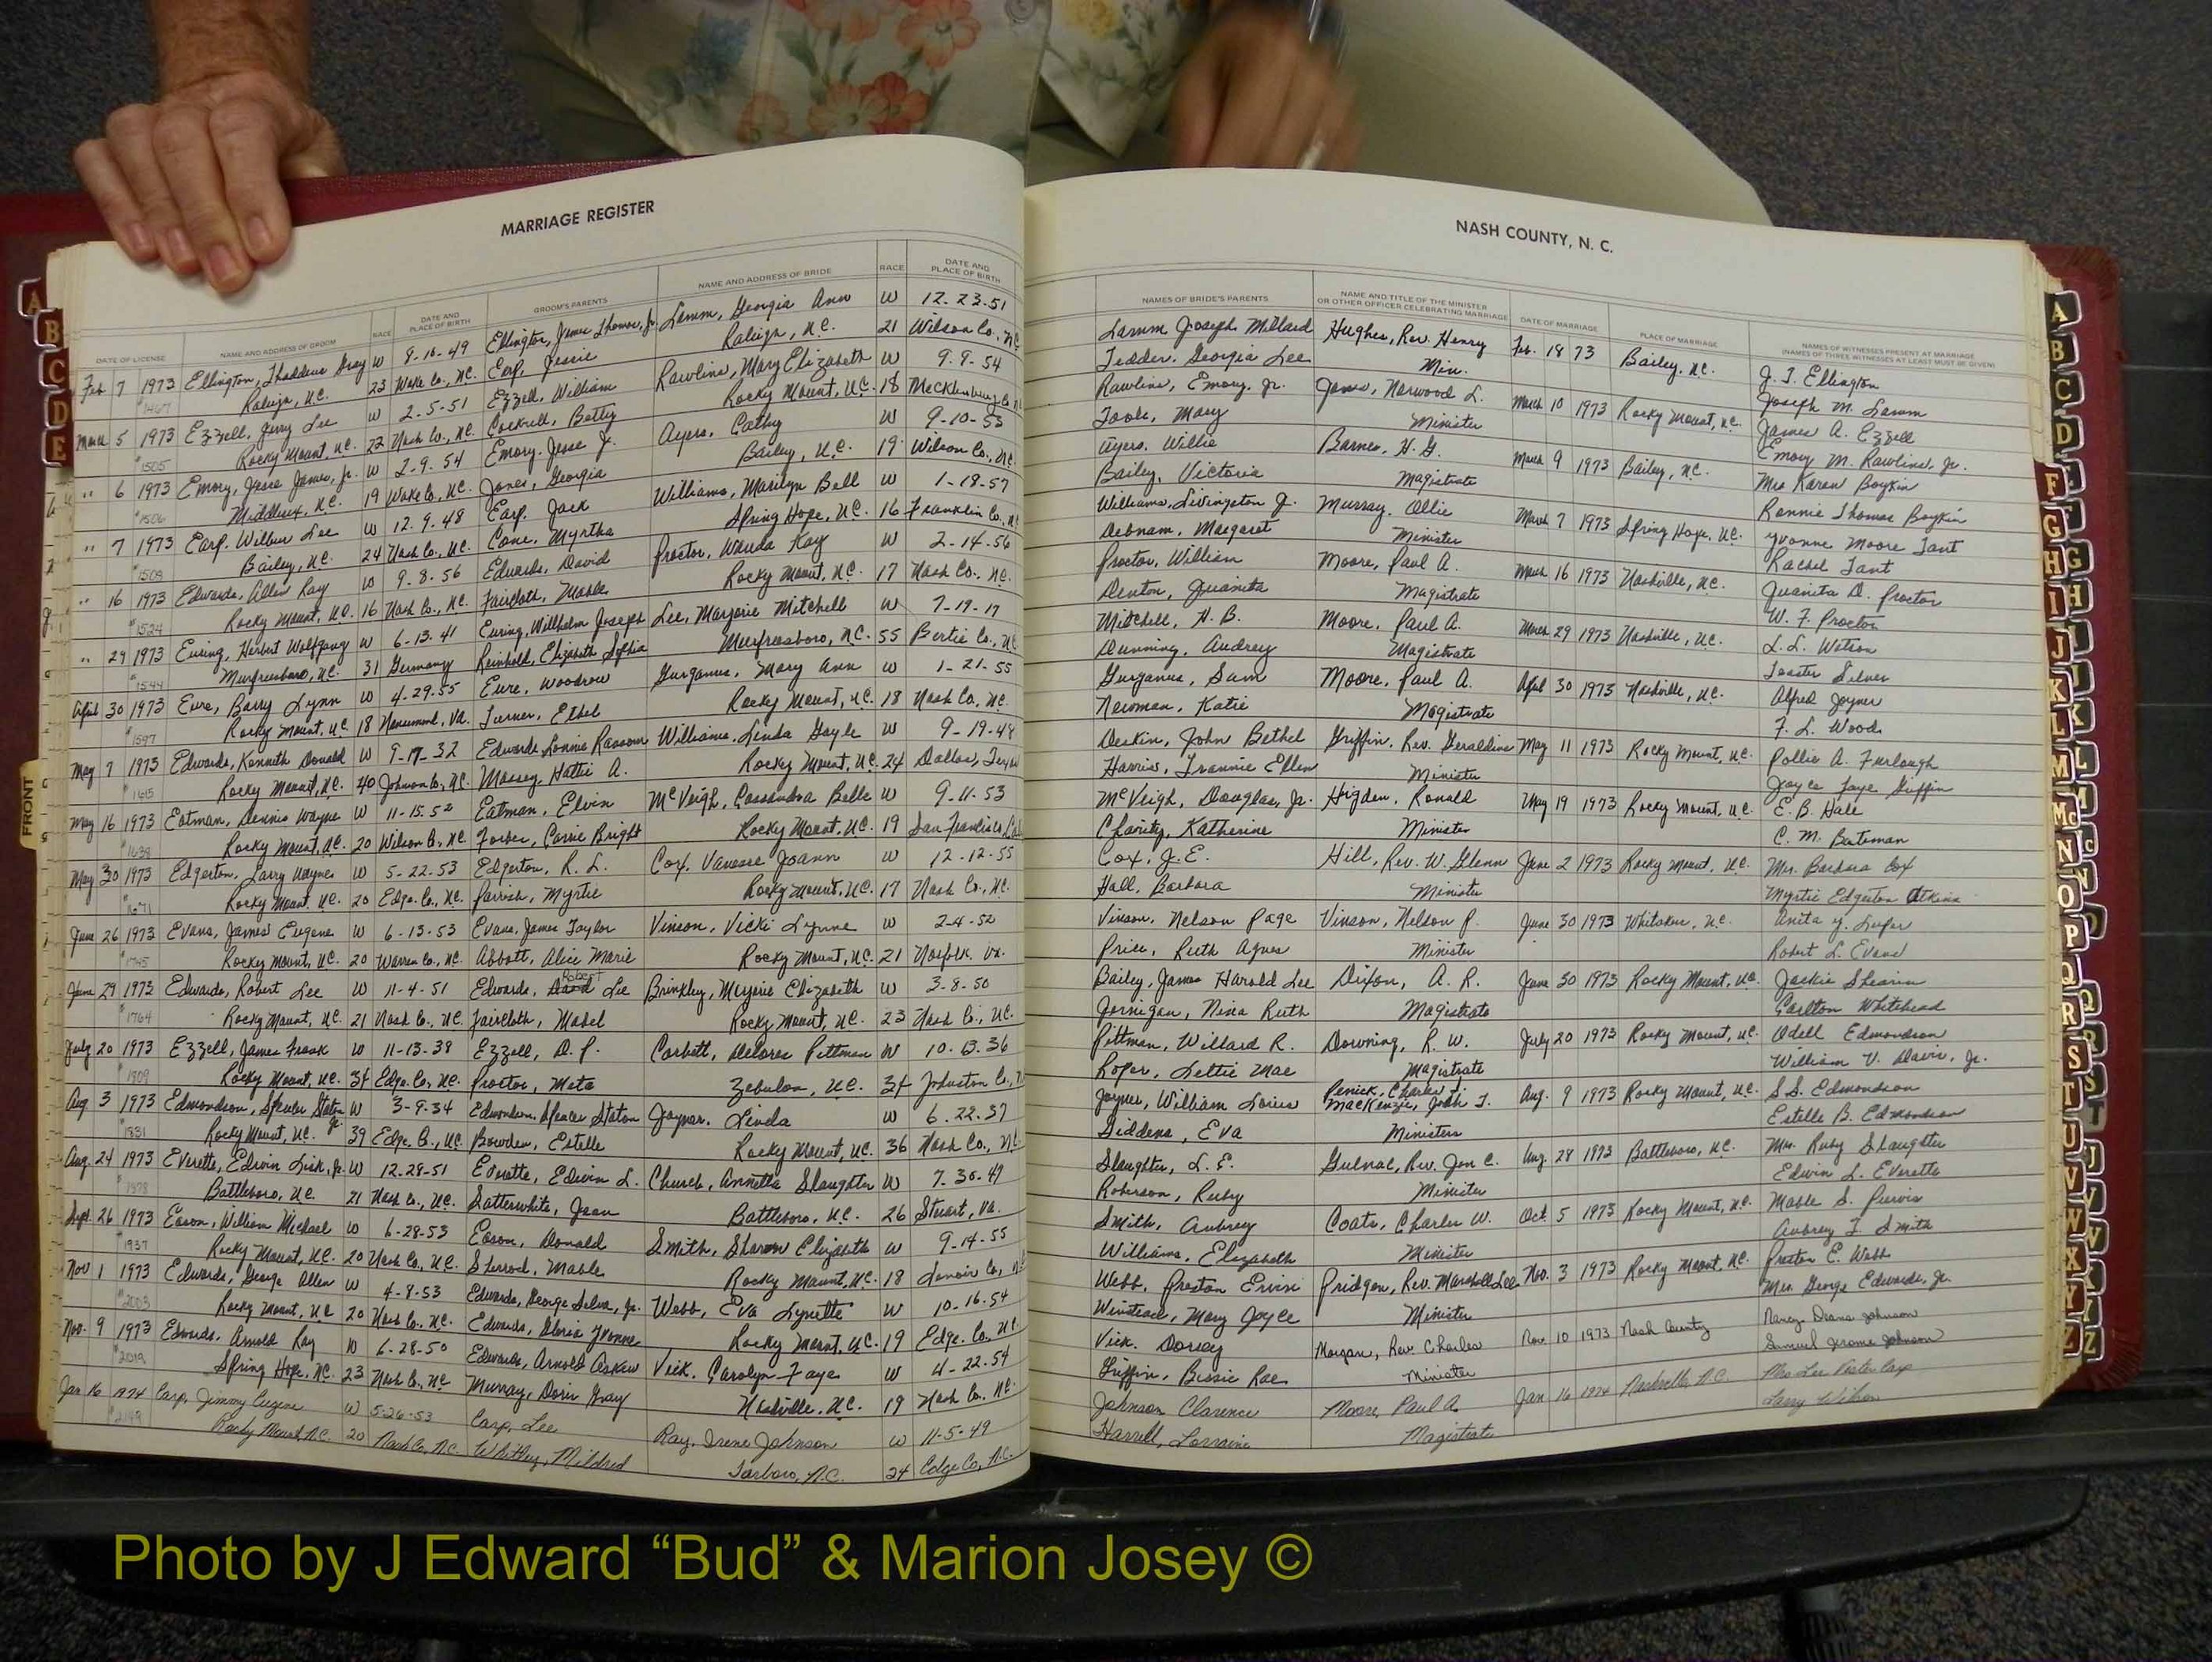 MARRIAGE REGISTER
NASH COUNTY, N. C.
DATE OF LICENSE NAME AND ADDRESS OF GROOM RACE DATE AND PLACE OF BIRTH GROOM'S PARENTS NAME AND ADDRESS OF BRIDE RACE DATE AND PLACE OF BIRTH
NAMES OF BRIDE'S PARENTS NAME AND TITLE OF THE MINISTER OR OTHER OFFICER CELEBRATING MARRIAGE DATE OF MARRIAGE PLACE OF MARRIAGE NAMES OF WITNESSES PRESENT AT MARRIAGE (NAMES OF THREE WITNESSES AT LEAST MUST BE GIVEN)
Feb 7 1973 Ellington, Thaddeus Gray W 9-16-49 Ellington, James Thomas, Jr. Lamm, Georgia Ann W 12-23-51 Lamm Joseph Millard Hughes, Rev. Henry Feb. 18 73 Bailey, N.C. J. T. Ellington
#1467 Raleigh, N.C. 23 Wake Co., N.C. Earp, Jessie Raleigh, N.C. 21 Wilson Co., N.C. Tedder, Georgia Lee Min. Joseph M. Lamm
March 5 1973 Ezzell, Jerry Lee W 2-5-51 Ezzell, William Rawlins, Mary Elizabeth W 9-9-54 Rawlins, Emory, Jr. Jones, Norwood L. March 10 1973 Rocky Mount, N.C. James A. Ezzell
#1505 Rocky Mount, N.C. 22 Nash Co., N.C. Cockrell, Betty Rocky Mount, N.C. 18 Mecklenburg Co. Toole, Mary Minister Emory M. Rawlins, Jr.
" 6 1973 Emory, Jesse James, Jr. W 2-9-54 Emory, Jesse J. Ayers, Cathy W 9-10-53 Ayers, Willie Barnes, H. G. March 9 1973 Bailey, N.C. Mrs Karen Boykin
#1506 Middlesex, N.C. 19 Wake Co., N.C. Jones, Georgia Bailey, N.C. 19 Wilson Co., N.C. Bailey, Victoria Magistrate Ronnie Thomas Boykin
" 7 1973 Earp, Wilbur Lee W 12-9-48 Earp, Jack Williams, Marilyn Bell W 1-18-57 Williams, Livingston J. Murray, Ollie March 7 1973 Spring Hope, N.C. Yvonne Moore Tant
#1509 Bailey, N.C. 24 Nash Co., N.C. Cone, Myrtha Spring Hope, N.C. 16 Franklin Co., N.C. Debnam, Margaret Minister Rachel Tant
" 16 1973 Edwards, Allen Ray W 9-8-56 Edwards, David Proctor, Wanda Kay W 2-14-56 Proctor, William Moore, Paul A. March 16 1973 Nashville, N.C. Juanita D. Proctor
#1524 Rocky Mount, N.C. 16 Nash Co., N.C. Faircloth, Mable Rocky Mount, N.C. 17 Nash Co., N.C. Denton, Juanita Magistrate W. F. Proctor
" 29 1973 Euring, Herbert Wolfgang W 6-13-41 Euring, Willhelm Joseph Lee, Marjorie Mitchell W 7-19-17 Mitchell, H. B. Moore, Paul A. March 29 1973 Nashville, N.C. L. L. Watson
#1544 Murfreesboro, N.C. 31 Germany Reinhold, Elizabeth Sophia Murfreesboro, N.C. 55 Bertie Co., N.C. Dunning, Audrey Magistrate
April 30 1973 Eure, Barry Lynn W 4-29-55 Eure, Woodrow Gurganus, Mary Ann W 1-21-55 Gurganus, Sam Moore, Paul A. April 30 1973 Nashville, N.C. Alfred Joyner
#1597 Rocky Mount, N.C. 18 Nansemond, Va. Turner, Ethel Rocky Mount, N.C. 18 Nash Co., N.C. Newman, Katie Magistrate F. L. Woods
May 7 1973 Edwards, Kenneth Donald W 9-17-32 Edwards, Lonnie Ransom Williams, Linda Gayle W 9-19-48 Deskin, John Bethel Griffin, Rev. Geraldine May 11 1973 Rocky Mount, N.C. Pollie A. Furlough
#1615 Rocky Mount, N.C. 40 Johnson Co., N.C. Massey, Hattie A. Rocky Mount, N.C. 24 Dallas, Texas Harris, Frannie Ellen Minister Joyce Faye Griffin
May 16 1973 Eatman, Dennis Wayne W 11-15-52 Eatman, Elvin McVeigh, Cassandra Belle W 9-11-53 McVeigh, Douglas, Jr. Higden, Ronald May 19 1973 Rocky Mount, N.C. E. B. Hale
Rocky Mount, N.C. 20 Wilson Co., N.C. Forbes, Carrie Bright Rocky Mount, N.C. 19 San Francisco, Charity, Katherine Minister C. M. Bateman
May 30 1973 Edgerton, Larry Wayne W 5-22-53 Edgerton, R. L. Cox, Vanessa Joann W 12-12-55 Cox, J. E. Hill, Rev. W. Glenn June 2 1973 Rocky Mount, N.C. Mrs. Barbara Cox
#1671 Rocky Mount, N.C. 20 Edge. Co., N.C. Parrish, Myrtie Rocky Mount, N.C. 17 Nash Co., N.C. Hall, Barbara Minister Myrtie Edgerton Atkins
June 26 1973 Evans, James Eugene W 6-13-53 Evans, James Taylor Vinson, Vicki Lynne W 2-4-52 Vinson, Nelson Page Vinson, Nelson P. June 30 1973 Whitakers, N.C. Anita Y. Luper
#1745 Rocky Mount, N.C. 20 Warren Co., N.C. Abbott, Alice Marie Rocky Mount, N.C. 21 Norfolk, Va. Price, Ruth Agnes Minister Robert L. Evans
June 29 1973 Edwards, Robert Lee W 11-4-51 Edwards, Robert Lee Brinkley, Myrie Elizabeth W 3-8-50 Bailey, James Harold Lee Dixon, A. R. June 30 1973 Rocky Mount, N.C. Jackie Shearin
#1764 Rocky Mount, N.C. 21 Nash Co., N.C. Faircloth, Mabel Rocky Mount, N.C. 23 Nash Co., N.C. Jernigan, Nina Ruth Magistrate Carlton Whitehead
July 20 1973 Ezzell, James Frank W 11-13-38 Ezzell, D. P. Corbett, Delores Pittman W 10-13-36 Pittman, Willard R. Downing, R. W. July 20 1973 Rocky Mount, N.C. Odell Edmondson
#1809 Rocky Mount, N.C. 34 Edge. Co., N.C. Proctor, Meta Zebulon, N.C. 34 Johnston Co., N. Roper, Lettie Mae Magistrate William V. Davis, Jr.
Aug 3 1973 Edmondson, Spencer Staton Jr. W 3-9-34 Edmondson, Spencer Staton Joyner, Linda W 6-22-37 Joyner, William Louis Penick, Charles MacKenzie, Josh T. Aug. 9 1973 Rocky Mount, N.C. S.S. Edmondson
#1831 Rocky Mount, N.C. 39 Edge. Co., N.C. Bowden, Estelle Rocky Mount, N.C. 36 Nash Co., N.C. Siddens, Eva Ministers Estelle B. Edmondson
Aug. 24 1973 Everette, Edwin Lisk, Jr. W 12-28-51 Everette, Edwin L. Church, Annetta Slaughter W 7-30-47 Slaughter, L. E. Gulnac, Rev. Jon C. Aug. 28 1973 Battleboro, N.C. Mrs. Ruby Slaughter
Battleboro, N.C. 21 Nash Co., N.C. Satterwhite, Jean Battleboro, N.C. 26 Stuart, Va. Roberson, Ruby Minister Edwin L. Everette
Sept. 26 1973 Eason, William Michael W 6-28-53 Eason, Donald Smith, Sharon Elizabeth W 9-14-55 Smith, Aubrey Coats, Charles W. Oct. 5 1973 Rocky Mount, N.C. Mable S. Purvis
#1937 Rocky Mount, N.C. 20 Nash Co., N.C. Sherrod, Mable Rocky Mount, N.C. 18 Lenoir Co., N. Williams, Elizabeth Minister Aubrey T. Smith
Nov 1 1973 Edwards, George Allen W 4-8-53 Edwards, George Selva, Jr. Webb, Eva Lynette W 10-16-54 Webb, Preston Ervin Pridgen, Rev. Marshall Lee Nov. 3 1973 Rocky Mount, N.C. Preston E. Webb
#2003 Rocky Mount, N.C. 20 Nash Co., N.C. Edwards, Gloria Yvonne Rocky Mount, N.C. 19 Edge. Co., N.C. Winstead, Mary Joyce Minister Mrs. George Edwards, Jr.
Nov. 9 1973 Edwards, Arnold Ray W 6-28-50 Edwards, Arnold Askew Vick, Carolyn Faye W 4-22-54 Vick, Dorsey Morgan, Rev. Charles Nov. 10 1973 Nash County Nancy Diana Johnson
#2019 Spring Hope, N.C. 23 Nash Co., N.C. Murray, Doris Gray Nashville, N.C. 19 Nash Co., N.C. Griffin, Bissie Rae Minister Samuel Jerome Johnson
Jan 16 1974 Earp, Jimmy Eugene W 5-26-53 Earp, Lee Ray, Irene Johnson W 11-5-49 Johnson Clarence Moore, Paul A. Jan 16 1974 Nashville, N.C. Mrs Lee Earp
#2149 Rocky Mount, N.C. 20 Nash Co, N.C. Whitley, Mildred Tarboro, N.C. 24 Edge Co, N.C. Harrell, Lorraine Magistrate Larry Wilson
A
B
C
D
E
FRONT
A
B
C
D
F
G
H
I
J
K
L
M
Mc
N
O
P
Q
R
S
T
U
V
W
X
Y
Z
Photo by J Edward “Bud” & Marion Josey ©